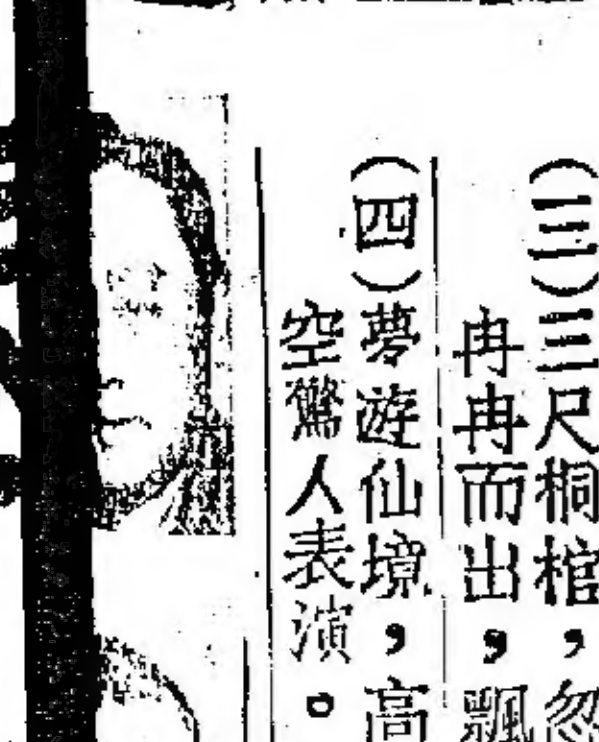 (三)三尺桐棺，忽
冉冉而出，飄
(四)夢遊仙境，高
空驚人表演。